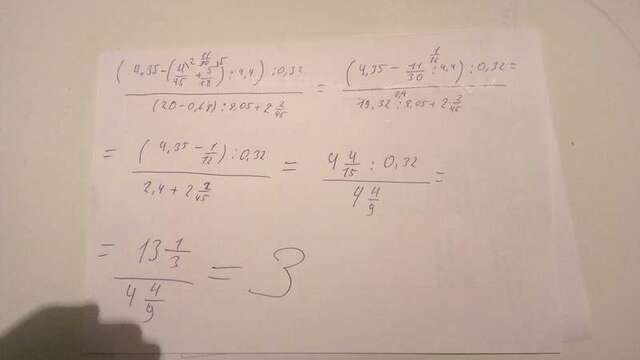 (4,35-(4/45^2+5/18^5)^11/30:4,4):0,32 / (20-0,68):8,05+2 2/45 = (4,35-11/30:4,4^1/12):0,32 / 19,32:8,05^2,4+2 2/45 =
= (4,35-1/12):0,32 / 2,4+2 2/45 = 4 4/15:0,32 / 4 4/9 =
= 13 1/3 / 4 4/9 = 3